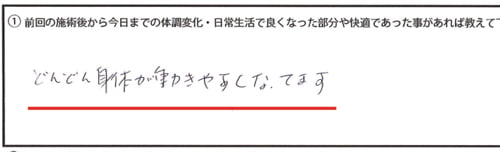 ① 前回の施術後から今日までの体調変化・日常生活で良くなった部分や快適であった事があれば教えて
どんどん身体が動きやすくなってます